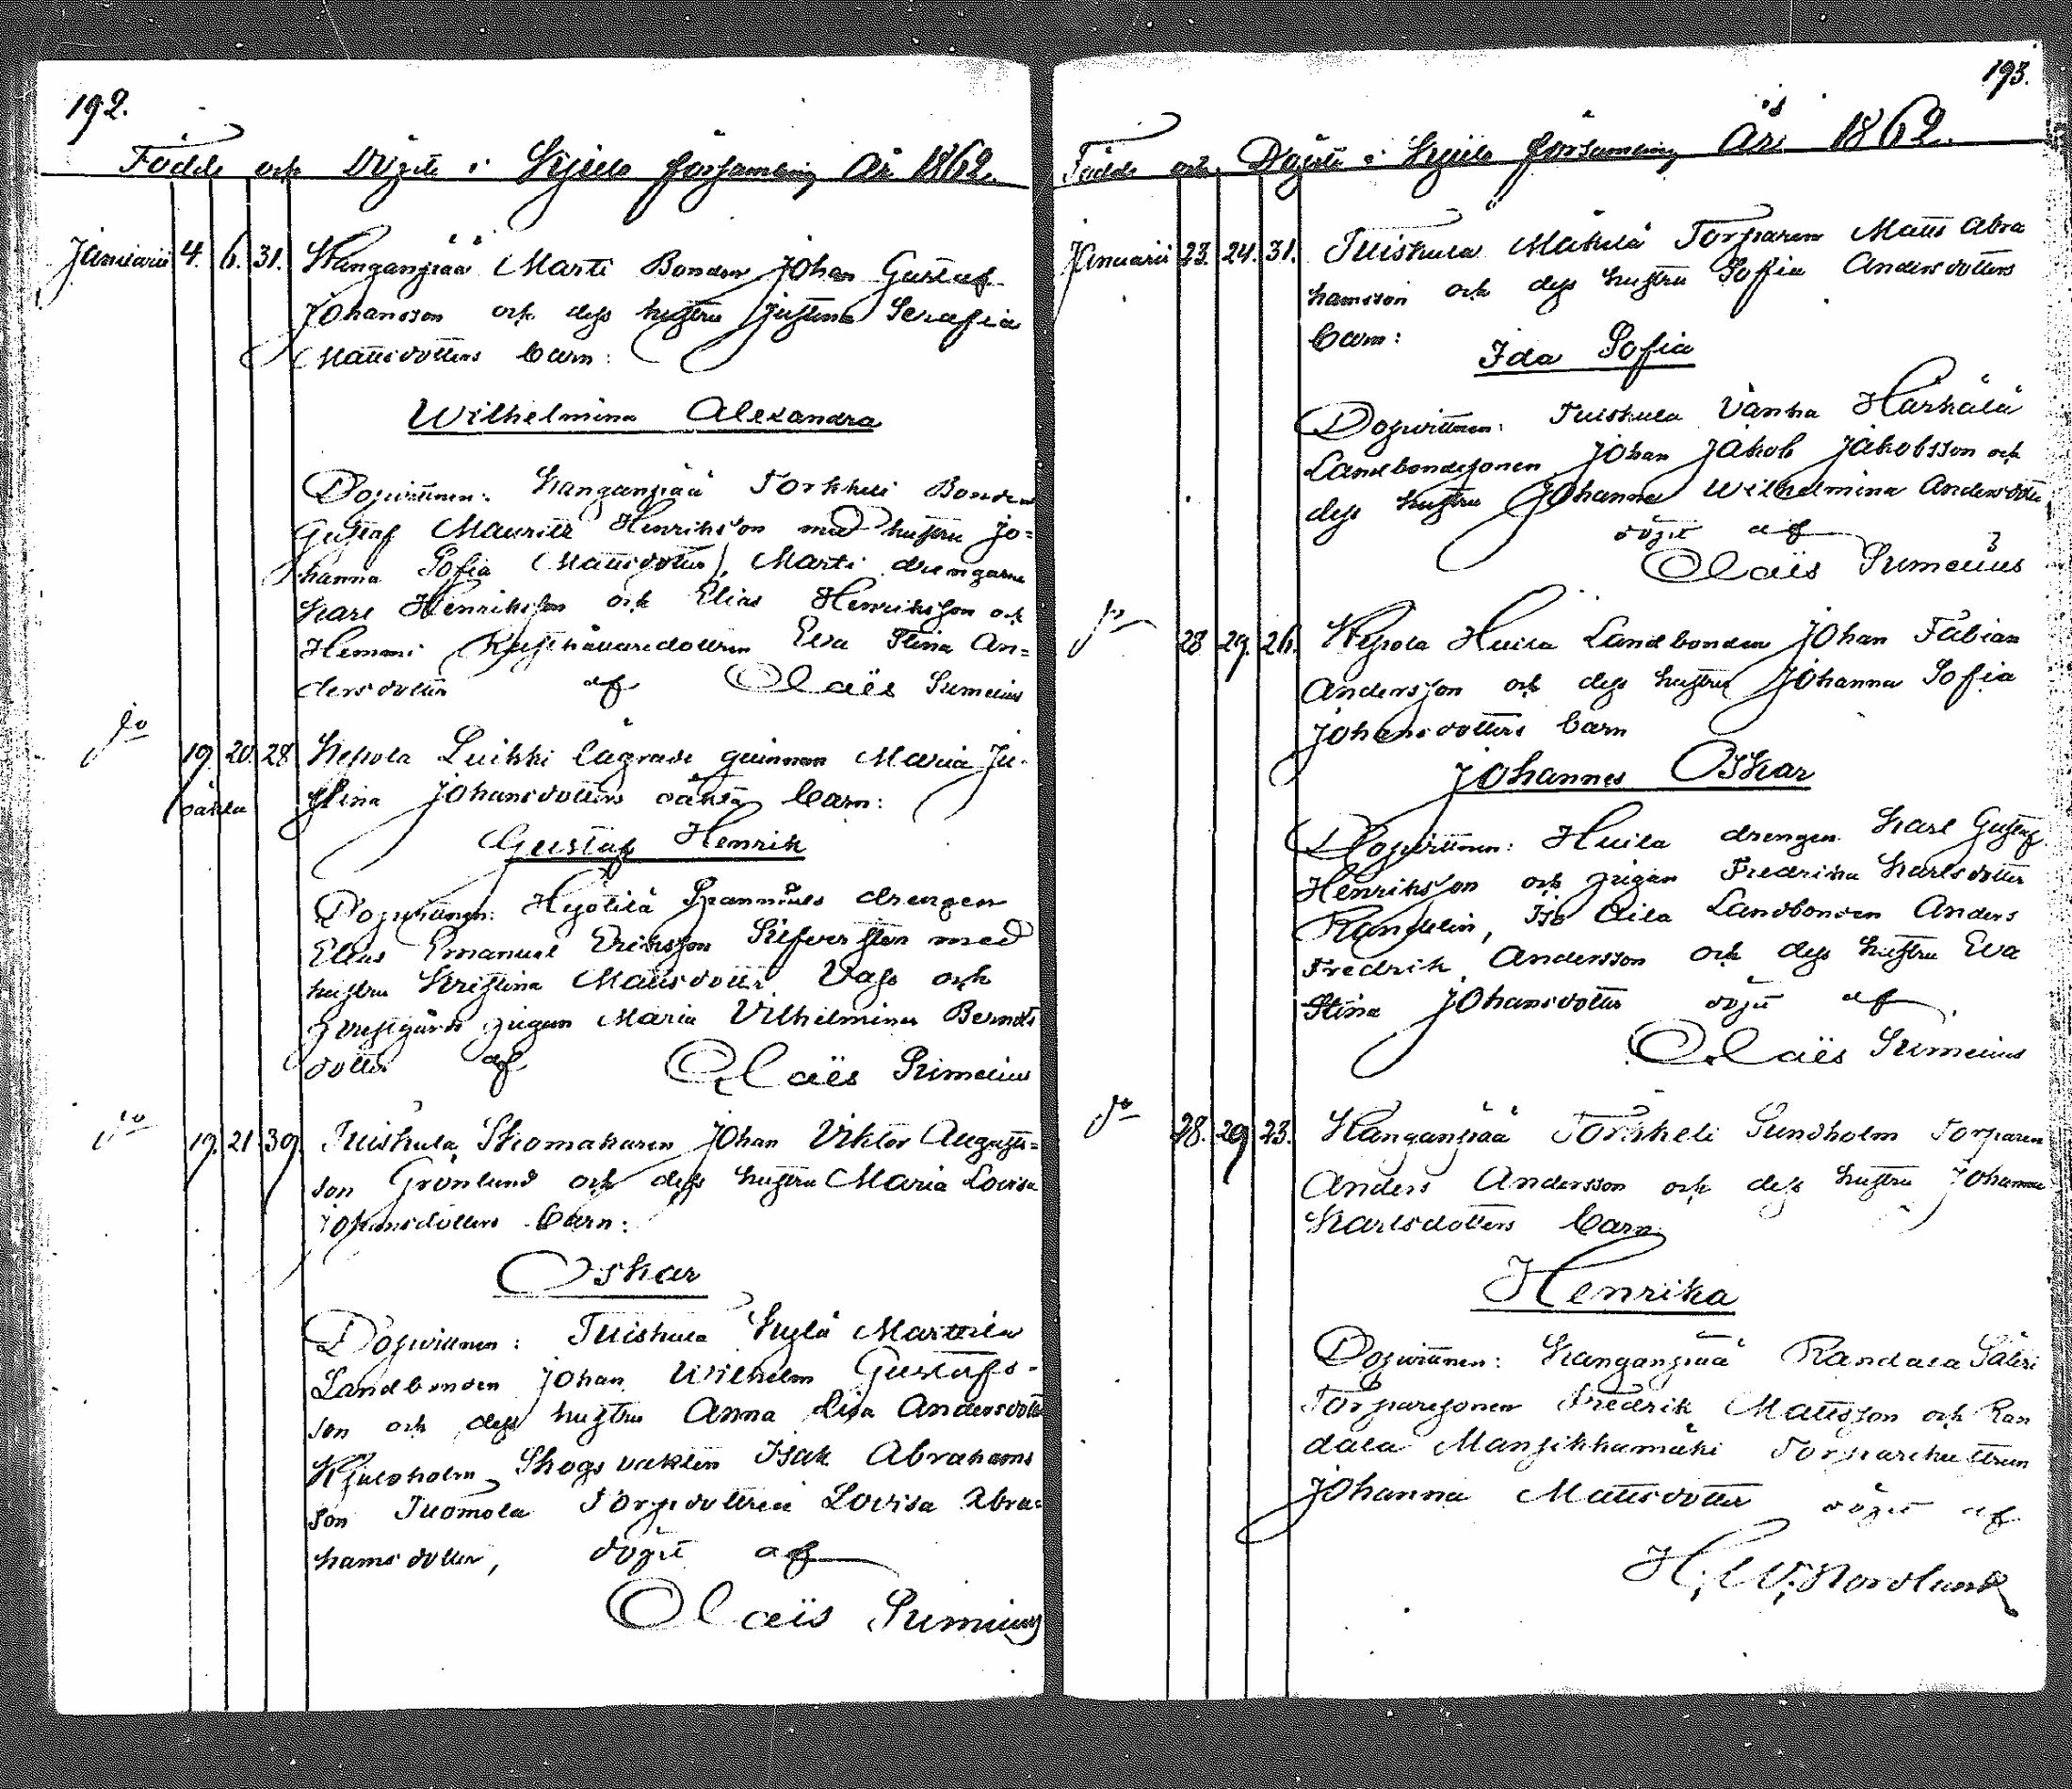 192.
Födde och Döpte i Kjulo församling År 1862.
Januarii 4. 6. 31. Kanganpää Marti Bonden Johan Gustaf
Johansson och dess hustru Justina Serafia
Mattsdotters barn:
Wilhelmina Alexandra
Dopvittnen: Kanganpää Torkkeli Bonden
Gustaf Mauritz Henriksson med hustru Jo=
hanna Sofia Mattsdotter, Marti drengarne
Karl Henriksson och Elias Henriksson och
Hemmi Eva Stina An=
dersdotter af Claës Sumelius
do 19. 20. 28 Kepola Luikki lägrade qvinnan Maria Ju-
oäkta stina Johansdotters oäkta barn:
Gustaf Henrik
Dopvittnen: drengen
Elias Emanuel Eriksson Silfversten med
hustru Kristina Mattsdotter och
pigan Maria Vilhelmina Bernds
dotter af Claës Sumelius
do 19. 21. 30. Tuiskula Skomakaren Johan Viktor Augusts=
son Grönlund och dess hustru Maria Lovisa
Johansdotters barn:
Oskar
Dopvittnen: Tuiskula Kylä Marttila
Landbonden Johan Wilhelm Gustafs-
son och dess hustru Anna Lisa Andersdotter
Kjuloholm Skogsvakten Isak Abrahams
son Tuomola Torpdottren Lovisa Abra=
hamsdotter, döpt af
Claës Sumelius
193.
Födde och Döpte i Kjulo församling År 1862.
Januarii 23. 24. 31. Tuiskula Mäkelä Torparen Matts Abra
hamsson och dess hustru Sofia Andersdotters
barn:
Ida Sofia
Dopvittnen: Tuiskula Vanha Härkälä
Landbondesonen Johan Jakob Jakobsson och
dess hustru Johanna Wilhelmina Andersdotter
döpt af
Claës Sumelius
do 28 29. 26. Kepola Huila Landbonden Johan Fabian
Andersson och dess hustru Johanna Sofia
Johansdotters barn
Johannes Oskar
Dopvittnen: Huila drengen Karl Gustaf
Henriksson och pigan Fredrika Karlsdotter
Randelin, Iso Eila Landbonden Anders
Fredrik Andersson och dess hustru Eva
Stina Johansdotter döpt af
Claës Sumelius
do 28. 29 23. Kanganpää Torkkeli Sundholm Torparen
Anders Andersson och dess hustru Johanna
Karlsdotters barn
Henrika
Dopvittnen: Kanganpää Randala Säteri
Torparesonen Fredrik Mattsson och Ran
dala Mansikkamäki Torparehustrun
Johanna Mattsdotter döpt af
H. W. Nordlund